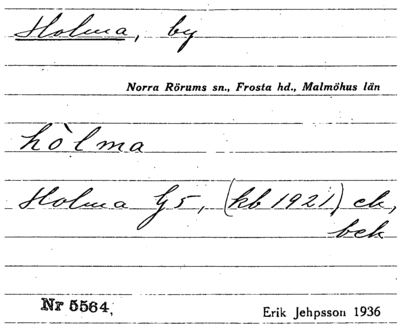 Holma, by
Norra Rörums sn., Frosta hd., Malmöhus län
hòlma
Holma G5, (kb 1921) ek,
bek
Nr 5564,
Erik Jehpsson 1936